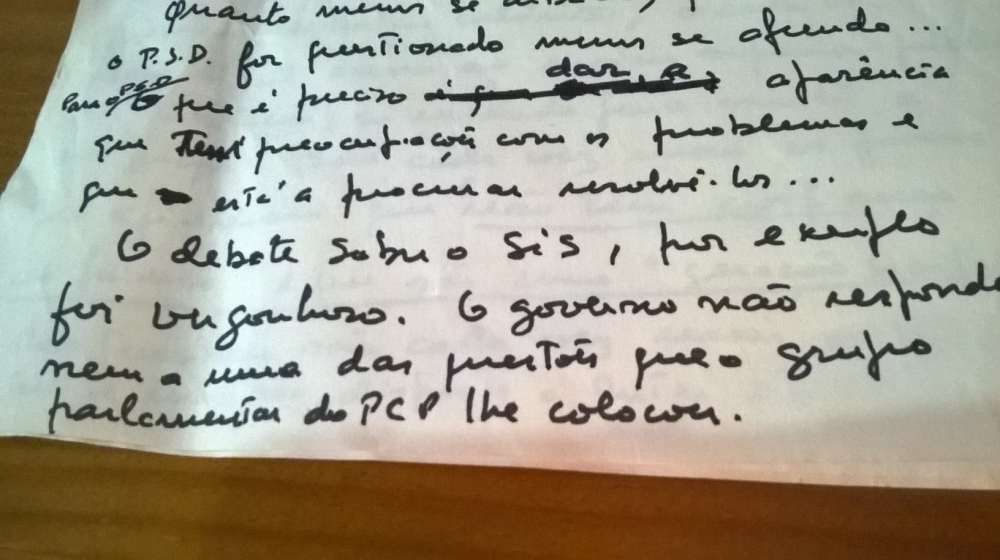 Quanto menos se
o P.S.D. for questionado menos se afunda...
Para o PSD que é preciso dar a aparência
que tem preocupação com os problemas e
que está a procurar resolvê-los...
O debate sobre o SIS, por exemplo
foi vergonhoso. O governo não responde
nem a uma das questões que o grupo
parlamentar do PCP lhe colocou.